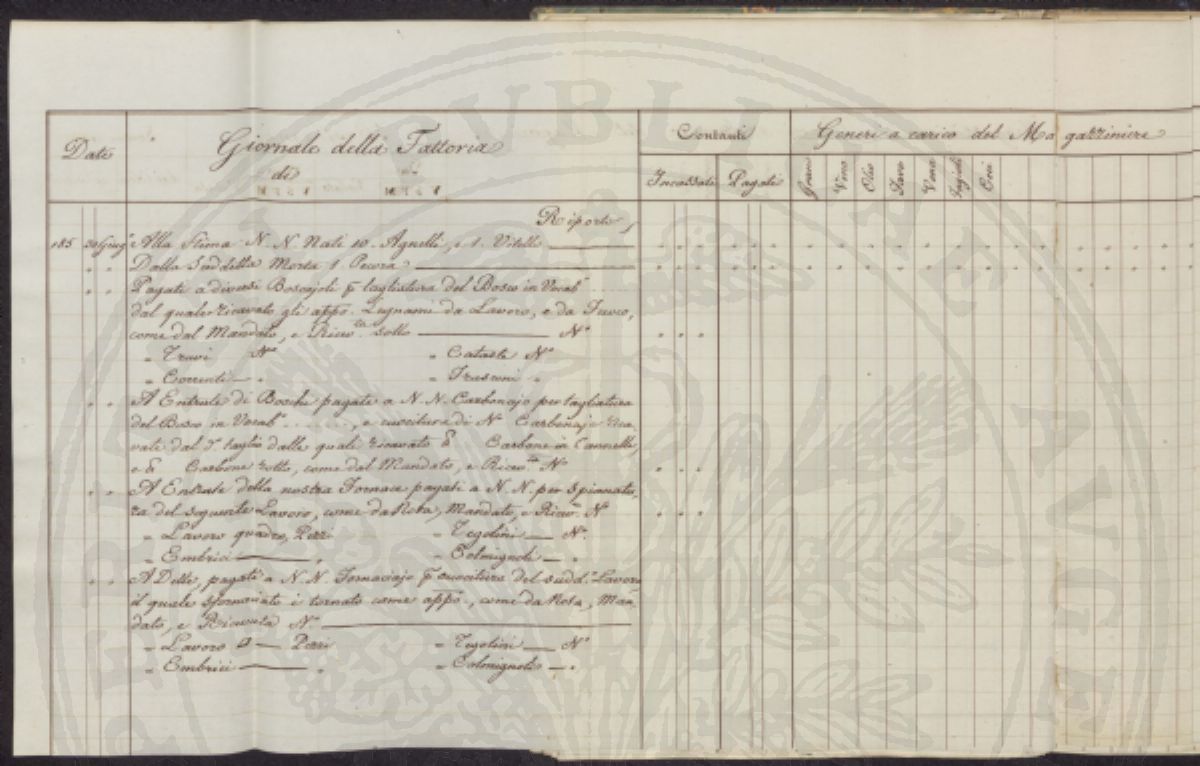 Date
Giornale della Fattoria
di
Contanti
Generi a carico del Magazziniere
Incassati Pagati
Grano Vino Olio Fava Vena Fagioli Orzi
Riporti
185 30 Giug.° Alla Stima N. N. Nati 10. Agnelli, e 1. Vitello
Dalla Suddetta Morta 1. Pecora
Pagati a diversi Boscajoli p tagliatura del Bosco in Vocab°
dal quale ricavato gli app°. Legnami da Lavoro, e da Fuoco,
come dal Mandato, e Ricev.ta sotto N°
" Travi N° " Cataste N°
" Correnti " "
A Entrate di Boschi pagate a N. N. Carbonajo per tagliatura
del Bosco in Vocab° , e cuocitura di N° Carbonaje rica-
vate dal d° taglio dalle quali ricavato Carbone in Cannelli,
e Carbone rotto, come dal Mandato, e Ricev.ta N°
A Entrate della nostra Fornace pagati a N. N. per spianatu-
ra del seguente Lavoro, come da Nota, Mandato, e Ricev. N°
" Lavoro quadro, Pezzi " Tegolini N°
" Embrici " " Colmignoli "
A Dette, pagati a N. N. Fornaciajo p cuocitura del sudd.° Lavoro
il quale sfornaciato è tornato come app°, come da Nota, Man-
dato, e Ricevuta N°
" Lavoro Pezzi " Tegolini N°
" Embrici " " Colmignoli "